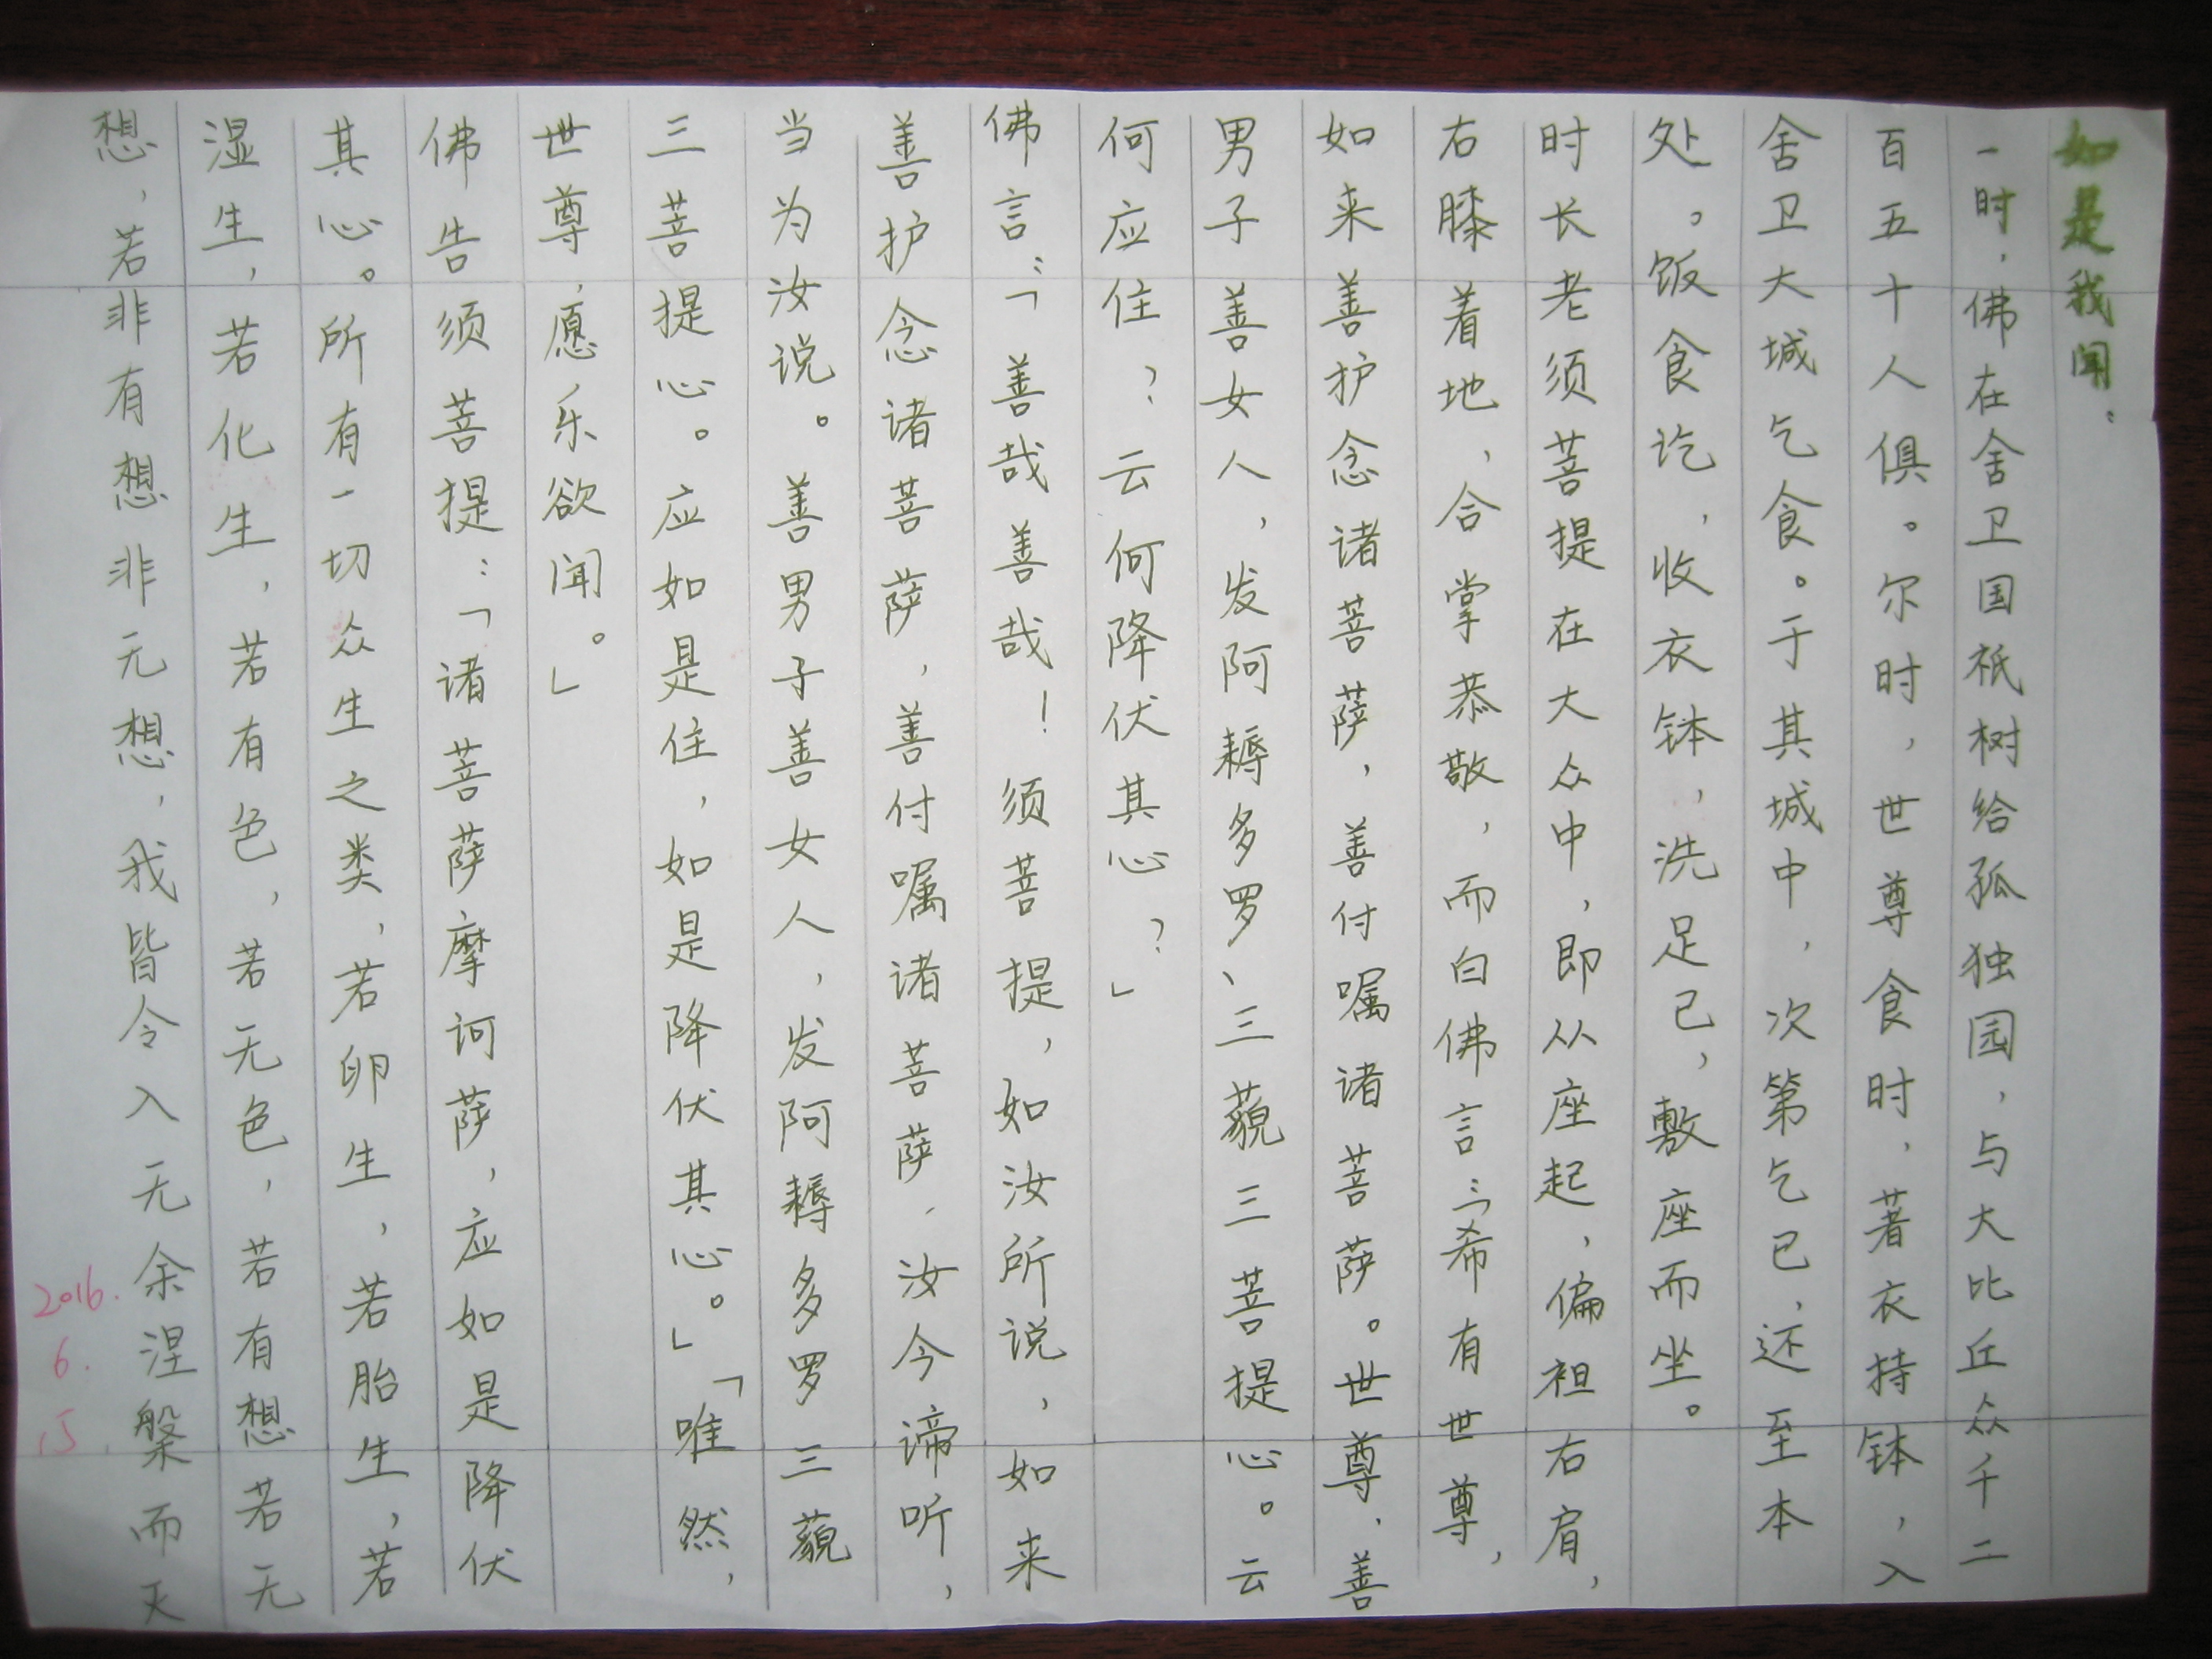 如是我闻：
一时，佛在舍卫国祇树给孤独园，与大比丘众千二
百五十人俱。尔时，世尊食时，著衣持钵，入
舍卫大城乞食。于其城中，次第乞已，还至本
处。饭食讫，收衣钵，洗足已，敷座而坐。
时长老须菩提在大众中，即从座起，偏袒右肩，
右膝着地，合掌恭敬，而白佛言：「希有世尊，
如来善护念诸菩萨，善付嘱诸菩萨。世尊，善
男子善女人，发阿耨多罗、三藐三菩提心。云
何应住？云何降伏其心？」
佛言：「善哉善哉！须菩提，如汝所说，如来
善护念诸菩萨，善付嘱诸菩萨，汝今谛听，
当为汝说。善男子善女人，发阿耨多罗三藐
三菩提心。应如是住，如是降伏其心。」「唯然，
世尊，愿乐欲闻。」
佛告须菩提：「诸菩萨摩诃萨，应如是降伏
其心。所有一切众生之类，若卵生，若胎生，若
湿生，若化生，若有色，若无色，若有想若无
想，若非有想非无想，我皆令入无余涅槃而灭
2016.
6.
15.